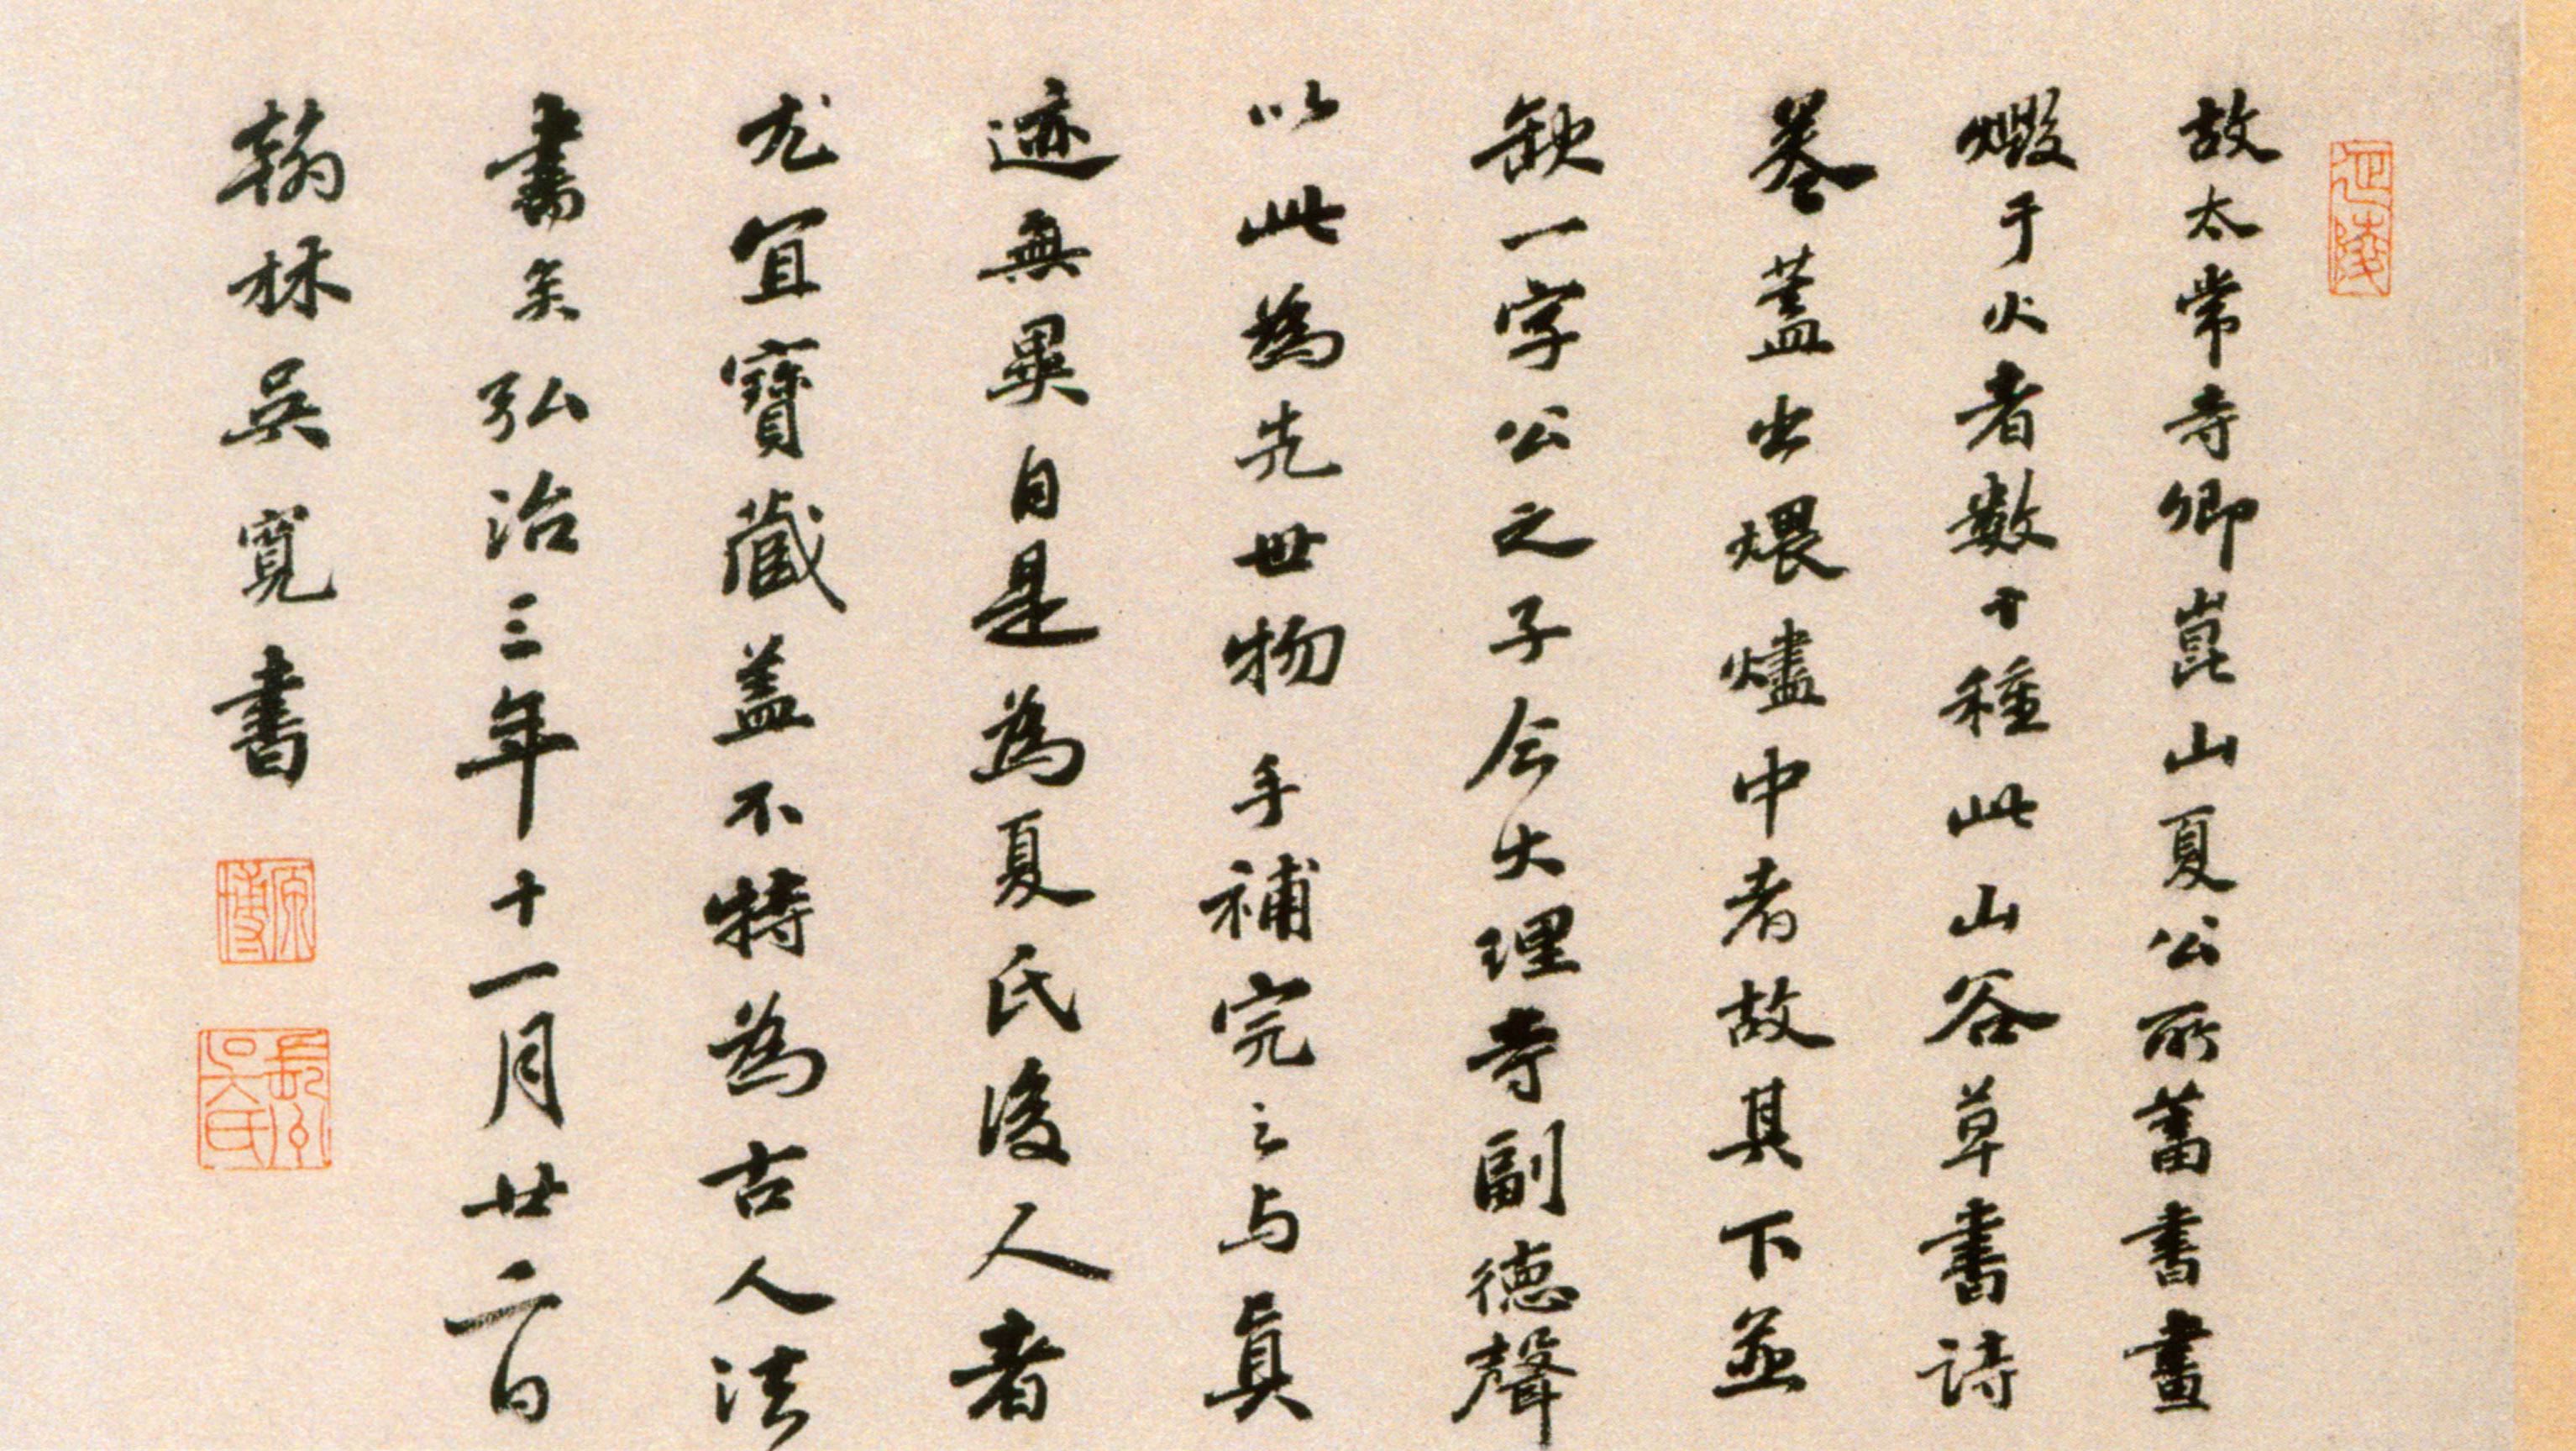 延陵
故太常寺卿崑山夏公所蓄書畫
燬于火者數十種此山谷草書詩
卷蓋出煨燼中者故其下並
缺一字公之子今大理寺副德聲
以此為先世物手補完之与真
迹無異自是為夏氏後人者
尤宜寶藏蓋不特為古人法
書矣弘治三年十一月廿二日
翰林吳寬書
原博
長洲吳氏